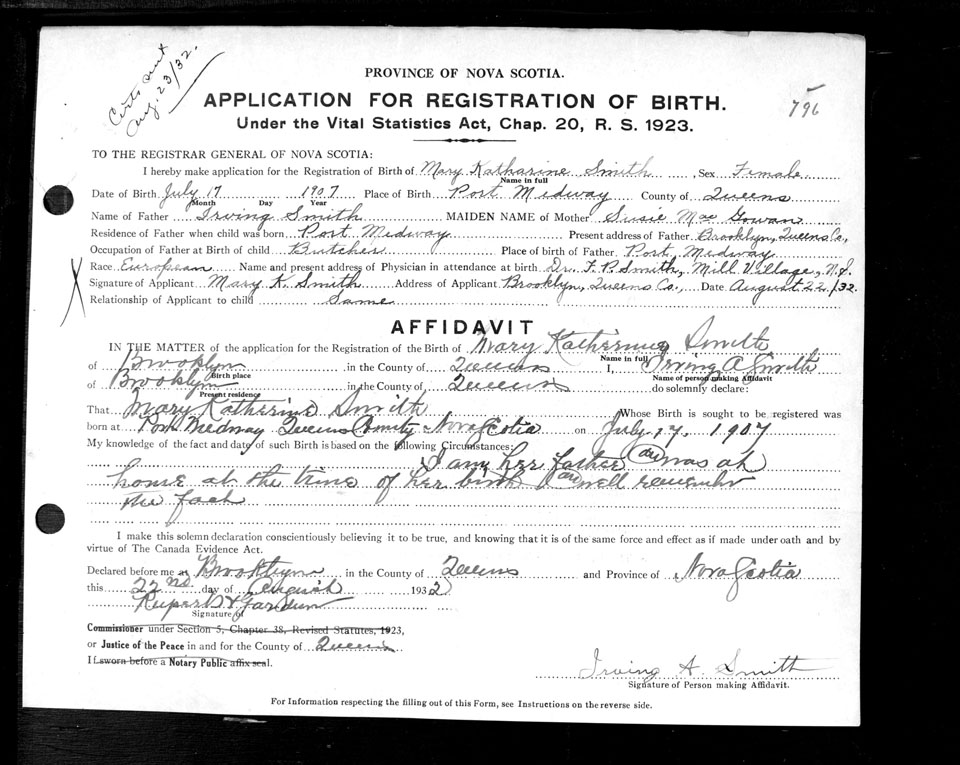 Certs sent
Aug. 23/32.
796
PROVINCE OF NOVA SCOTIA.
APPLICATION FOR REGISTRATION OF BIRTH.
Under the Vital Statistics Act, Chap. 20, R. S. 1923.
TO THE REGISTRAR GENERAL OF NOVA SCOTIA:
I hereby make application for the Registration of Birth of Mary Katharine Smith, Sex Female
Name in full
Date of Birth July 17 1907 Place of Birth Port Medway County of Queens
Month Day Year
Name of Father Irving Smith MAIDEN NAME of Mother Susie MacGowan
Residence of Father when child was born Port Medway Present address of Father Brooklyn, Queens Co.,
Occupation of Father at Birth of child Butcher Place of birth of Father Port Medway
Race European Name and present address of Physician in attendance at birth Dr. F. P. Smith, Mill Village, N.S.
Signature of Applicant Mary K. Smith Address of Applicant Brooklyn, Queens Co., Date August 22/32.
Relationship of Applicant to child Same
AFFIDAVIT
IN THE MATTER of the application for the Registration of the Birth of Mary Katherine Smith
Name in full
of Brooklyn in the County of Queens I, Irving A Smith
Birth place Name of person making Affidavit
of Brooklyn in the County of Queens do solemnly declare:
Present residence
That Mary Katherine Smith Whose Birth is sought to be registered was
born at Port Medway Queens County Nova Scotia on July 17, 1907
My knowledge of the fact and date of such Birth is based on the following Circumstances:
I am her father and was at
home at the time of her birth and well remember
the fact
I make this solemn declaration conscientiously believing it to be true, and knowing that it is of the same force and effect as if made under oath and by
virtue of The Canada Evidence Act.
Declared before me at Brooklyn in the County of Queens and Province of Nova Scotia
this 22nd day of August 1932
Rupert
Signature of
Commissioner under Section 5, Chapter 38, Revised Statutes, 1923,
or Justice of the Peace in and for the County of Queens
If sworn before a Notary Public affix seal.
Irving A. Smith
Signature of Person making Affidavit.
For Information respecting the filling out of this Form, see Instructions on the reverse side.